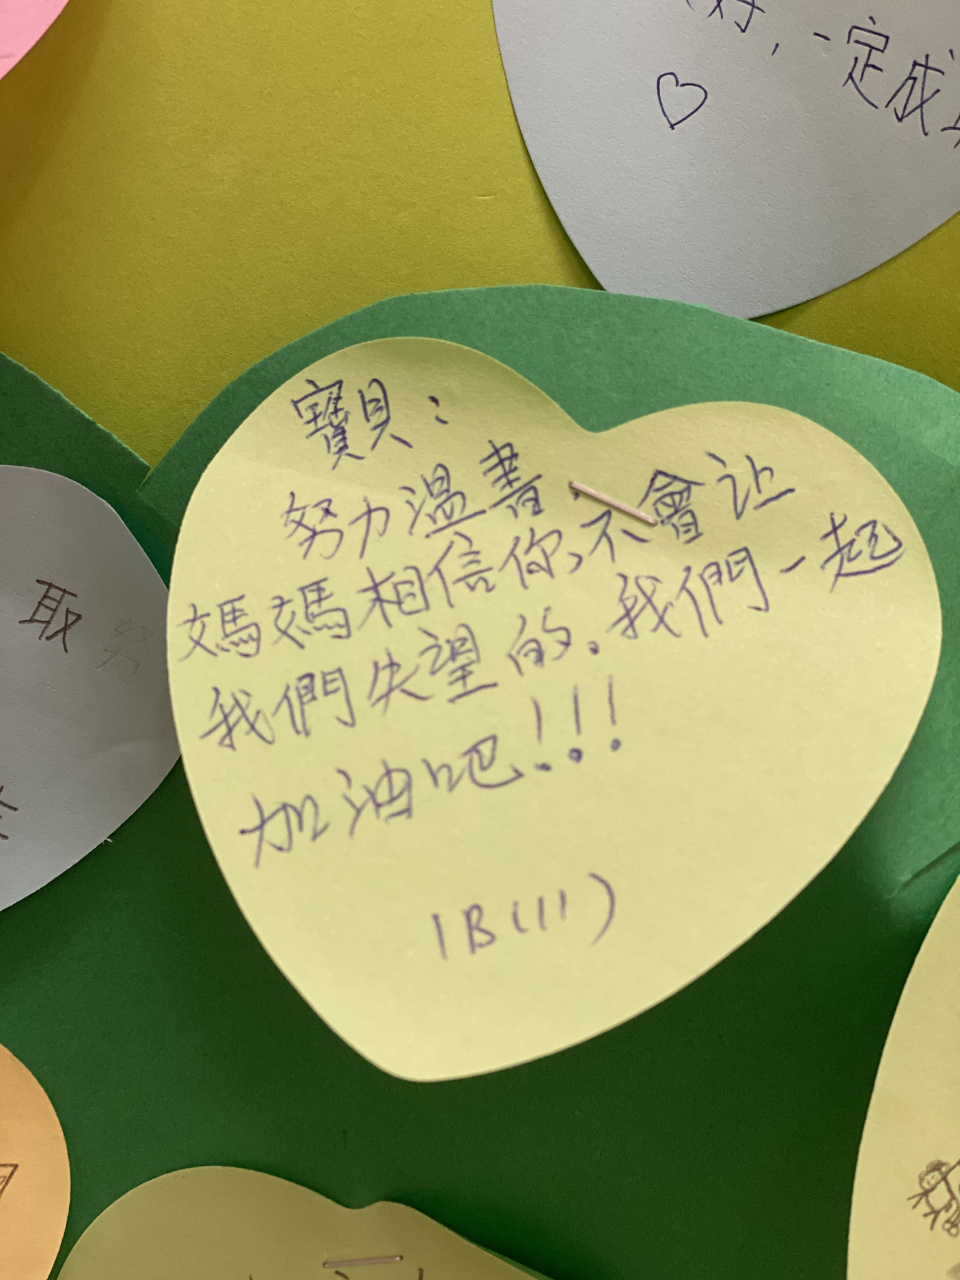 好,一定成
♡
寶貝:
努力溫書
媽媽相信你,不會让
我們失望的.我們一起
加油吧!!!
1B(11)
取努